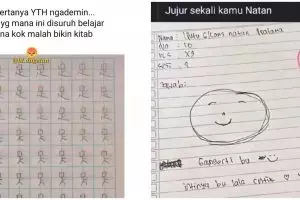 ertanya YTH ngademin...
yg mana ini disuruh belajar
na kok malah bikin kitab
Jujur sekali kamu Natan
Nama : Putu Gloms natan Pratama
No : 10
Jawab:
Gangerti bu
intinya bu lala cntik